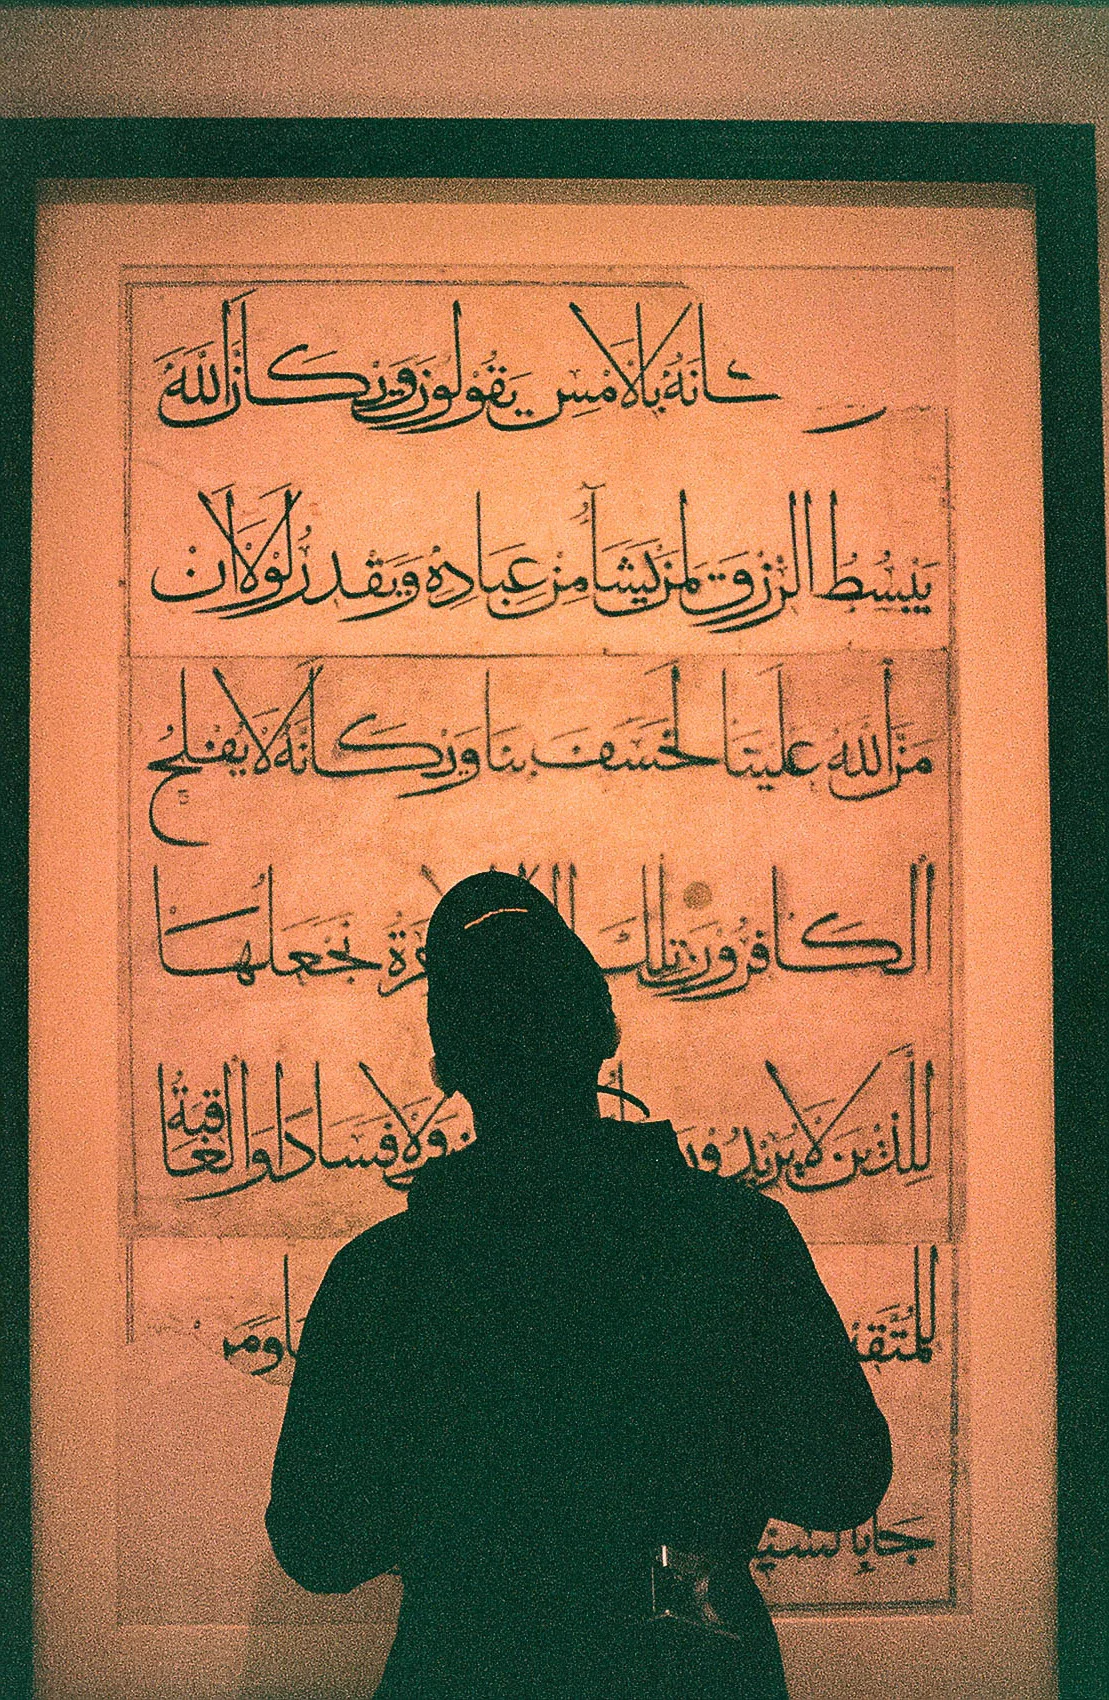 مَكَانَهُ بِالْأَمْسِ يَقُولُونَ وَيْكَأَنَّ اللَّهَ
يَبْسُطُ الرِّزْقَ لِمَنْ يَشَآءُ مِنْ عِبَادِهِ وَيَقْدِرُ لَوْلَا أَنْ
مَنَّ اللَّهُ عَلَيْنَا لَخَسَفَ بِنَا وَيْكَأَنَّهُ لَا يُفْلِحُ
الْكَافِرُونَ تِلْكَ نَجْعَلُهَا
لِلَّذِينَ لَا يُرِيدُونَ وَلَا فَسَادًا وَالْعَاقِبَةُ
لِلْمُتَّقِينَ وَمَنْ
جَاءَ بِالسَّيِّئَةِ